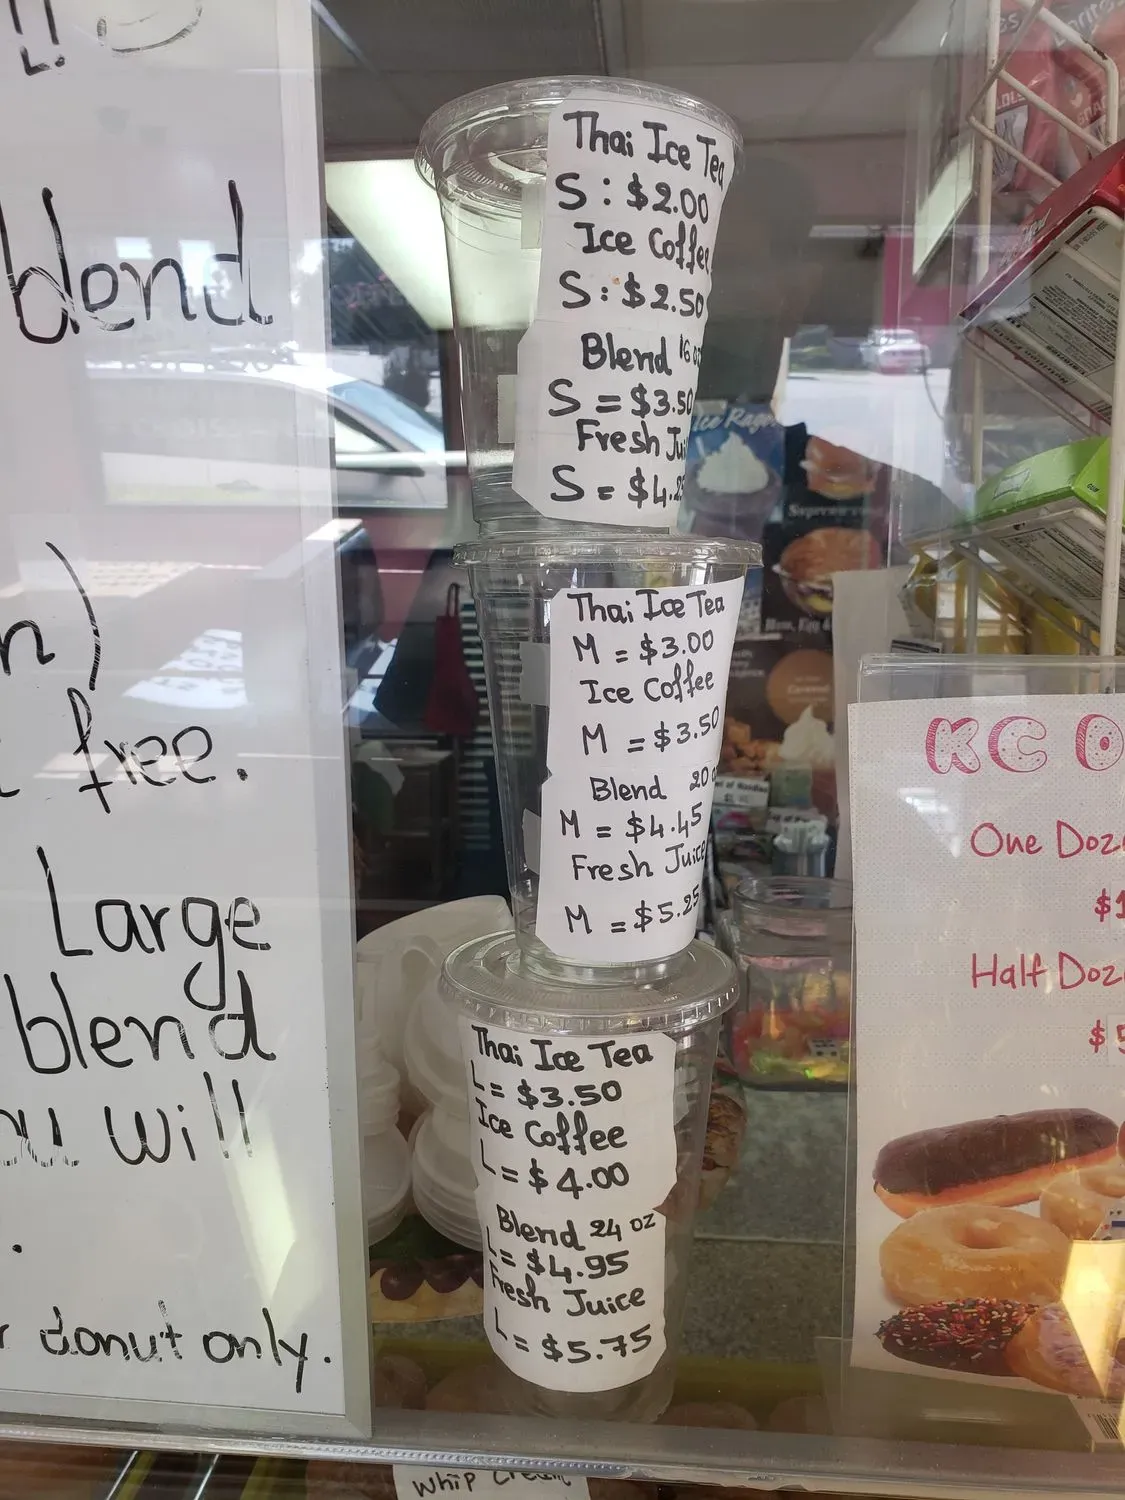 blend
n)
free.
Large
blend
will
donut only.
Thai Ice Tea
S : $2.00
Ice Coffee
S : $2.50
Blend 16 oz
S = $3.50
Fresh Jui
S = $4.25
Thai Ice Tea
M = $3.00
Ice Coffee
M = $3.50
Blend 20 o
M = $4.45
Fresh Juice
M = $5.25
Thai Ice Tea
L = $3.50
Ice Coffee
L = $4.00
Blend 24 oz
L = $4.95
Fresh Juice
L = $5.75
Ice Rage
KC
One Doz
$1
Half Doz
$5
Whip Cream